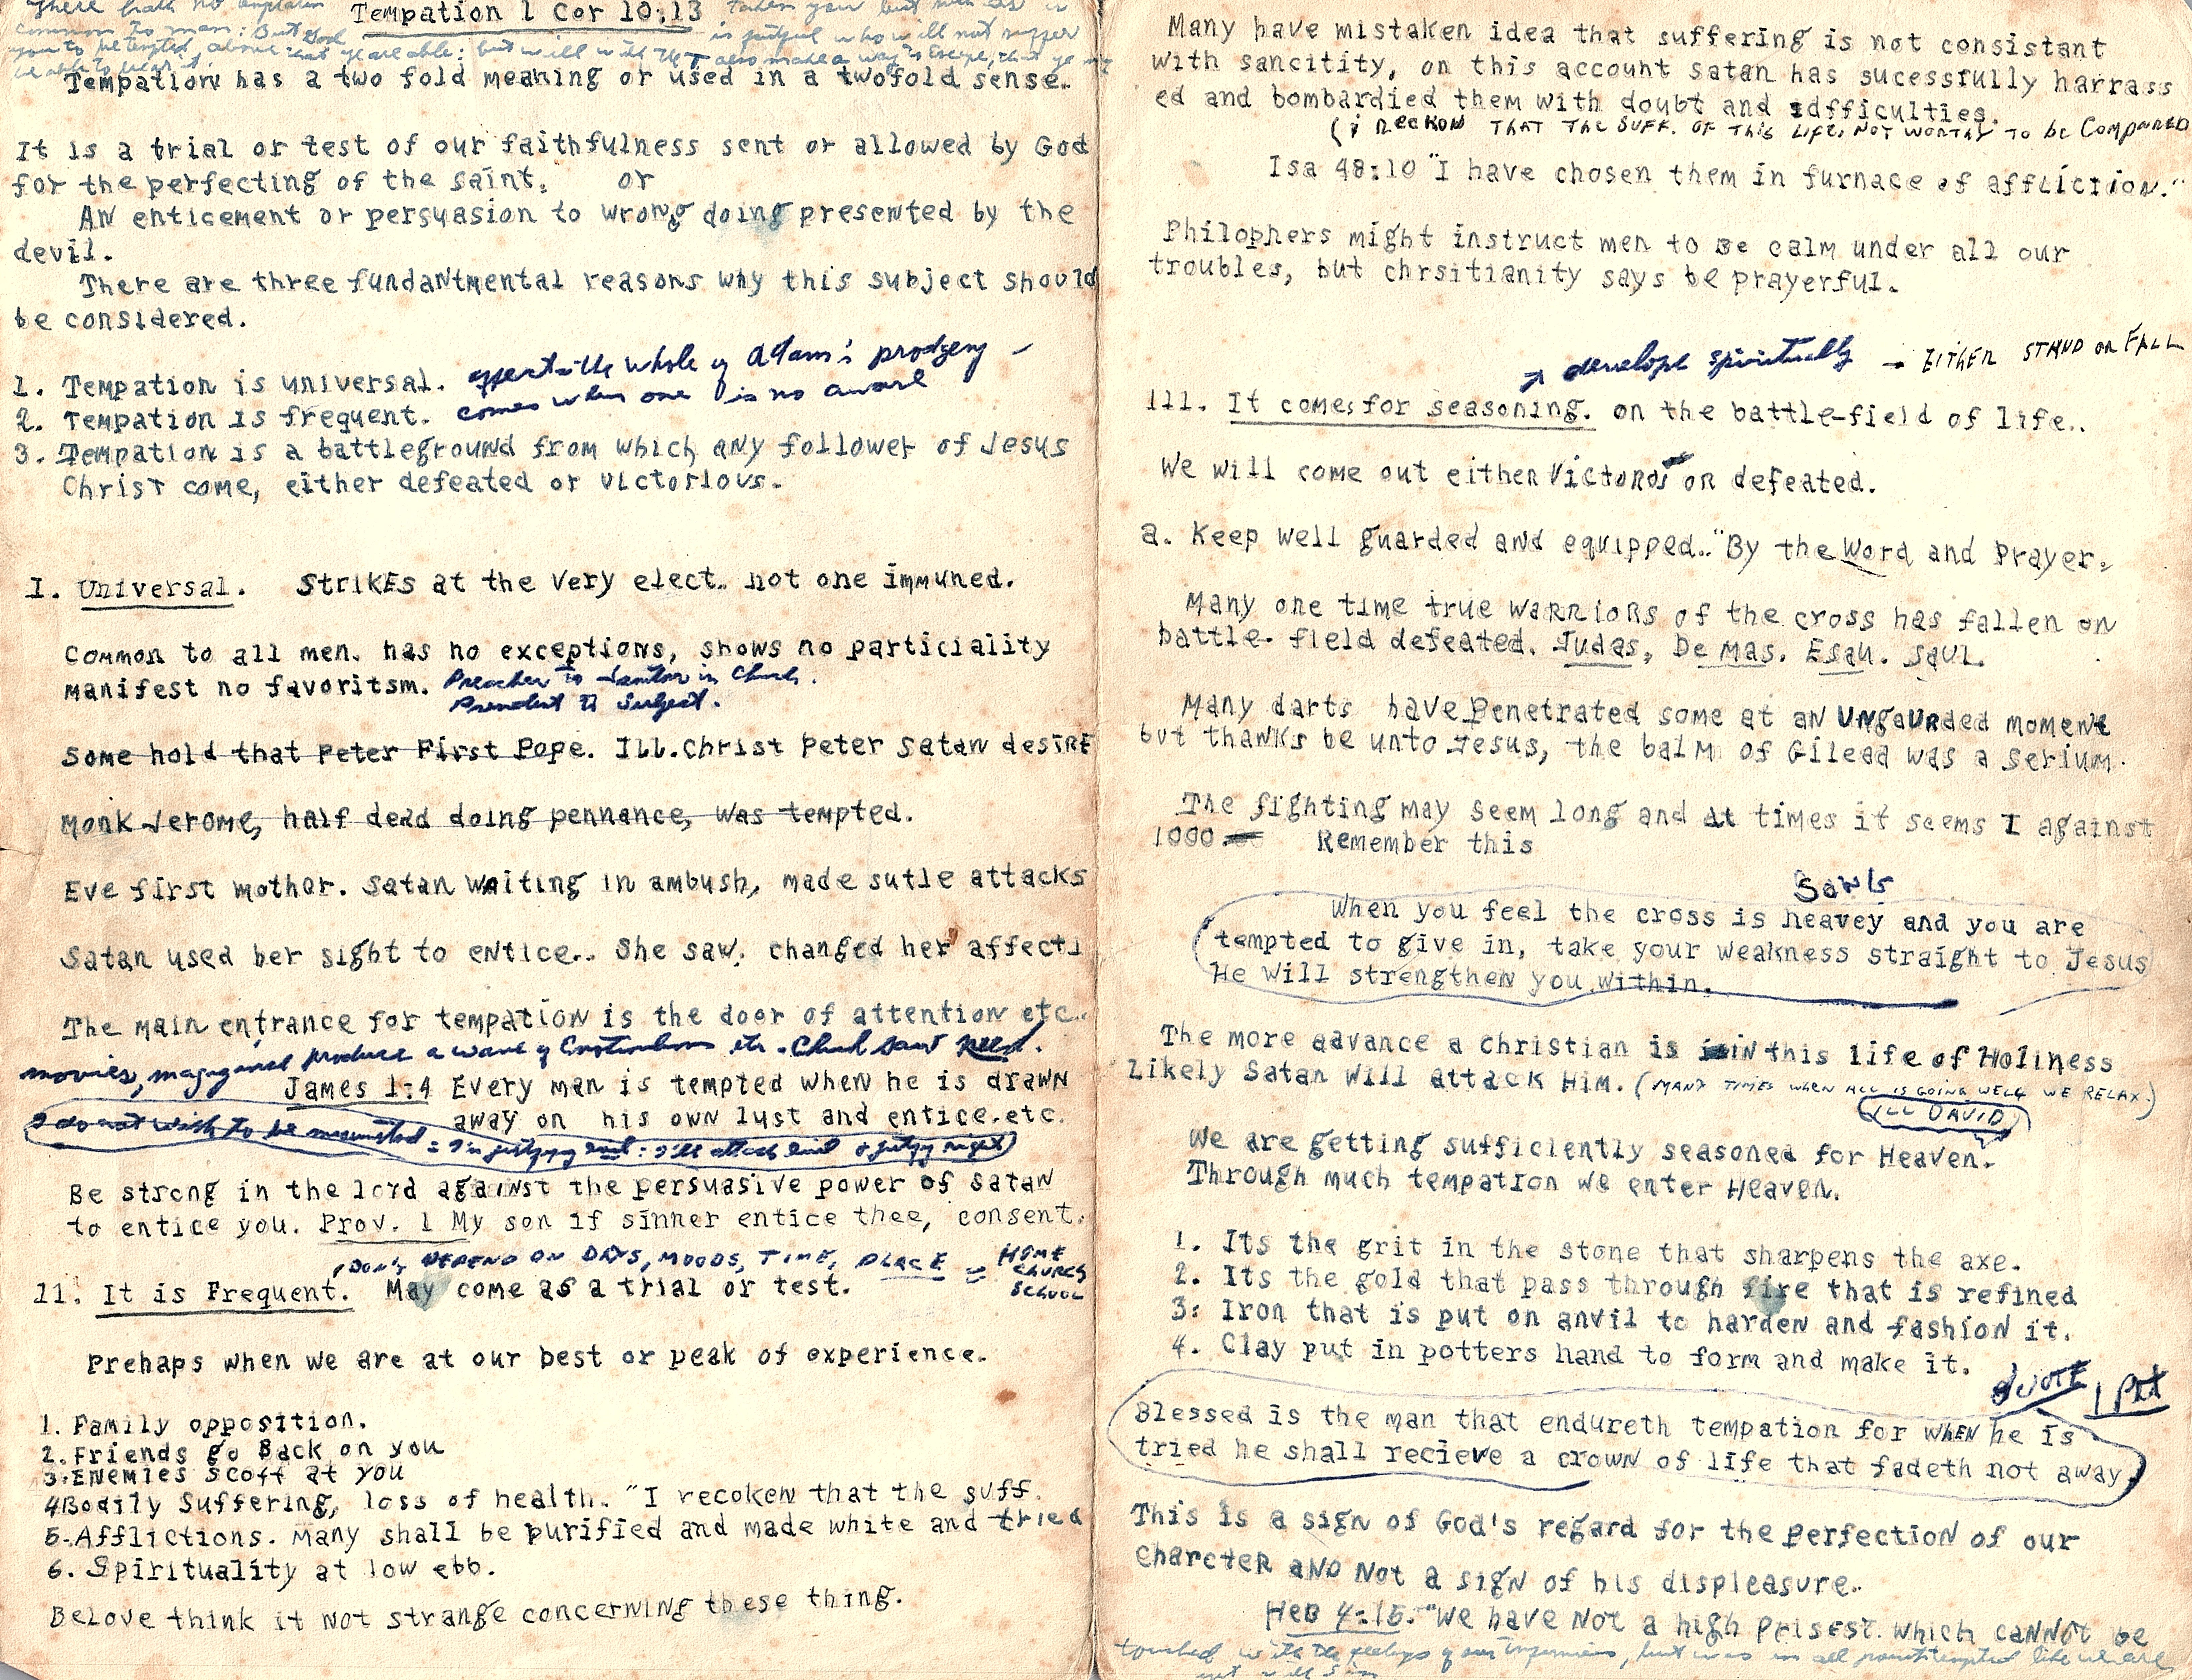 Tempation 1 Cor 10:13
There hath no taken you but such as is
common to man: But God is faithful who will not suffer
you to be tempted above that ye are able: but will with the T also make a way to escape, that ye may
be able to bear it.
Tempation has a two fold meaning or used in a twofold sense.
It is a trial or test of our faithfulness sent or allowed by God
for the perfecting of the saint. or
AN enticement or persuasion to wrong doing presented by the
devil.
There are three fundantmental reasons why this subject should
be considered.
1. Tempation is universal. whole of Adam's prodgeny -
2. Tempation is frequent. comes when one is no aware
3. Tempation is a battleground from which any follower of Jesus
Christ come, either defeated or victorious.
I. Universal. Strikes at the very elect.. not one immuned.
Common to all men. has no exceptions, shows no particiality
manifest no favoritsm. Preacher to Janitor in Church.
President to Subject.
Some hold that Peter First Pope. Ill. Christ Peter Satan desire
Monk Jerome, half dead doing pennance, was tempted.
Eve first mother. Satan waiting in ambush, made sutle attacks
Satan used her sight to entice.. She saw. changed her affecti
The main entrance for tempation is the door of attention etc..
movies, produce a wave of etc.
James 1:4 Every man is tempted when he is drawn
away on his own lust and entice.etc.
I do not wish to be = I'm justifying evil: I'll attack evil & justify right)
Be strong in the lord against the persuasive power of satan
to entice you. Prov. 1 My son if sinner entice thee, consent.
DON'T DEPEND ON DAYS, MOODS, TIME, PLACE = HOME
CHURCH
SCHOOL
11. It is Frequent. May come as a trial or test.
Prehaps when we are at our best or peak of experience.
1. Family opposition.
2. Friends go Back on you
3. Enemies scoff at you
4 Bodily Suffering, loss of health. "I recoken that the suff.
5. Afflictions. Many shall be purified and made white and tried
6. Spirituality at low ebb.
Belove think it not strange concerning these thing.
Many have mistaken idea that suffering is not consistant
with sancitity, on this account Satan has sucessfully harrass
ed and bombardied them with doubt and difficulties.
(i RECKON THAT THE SUFF. OF THIS LIFE, NOT WORTHY TO be COMPARED
Isa 48:10 "I have chosen them in furnace of affliction."
Philophers might instruct men to be calm under all our
troubles, but chrsitianity says be prayerful.
develope spiritually - EITHER STAND OR FALL
111. It comes for seasoning. on the battle-field of life..
We will come out either Victors or defeated.
a. Keep well guarded and equipped.." By the Word and Prayer.
Many one time true warriors of the cross has fallen on
battle- field defeated. Judas, Demas. Esau. Saul.
Many darts have penetrated some at an ungaurded moment
but thanks be unto Jesus, the balm of Gilead was a serium.
The fighting may seem long and at times it seems I against
1000. Remember this
When you feel the cross is heavey and you are
tempted to give in, take your weakness straight to Jesus
He will strengthen you within.
The more advance a christian is in this life of Holiness
Likely Satan will attack Him. (MANY TIMES WHEN ALL IS GOING WELL WE RELAX.)
ILL DAVID
We are getting sufficiently seasoned for Heaven.
Through much tempation we enter Heaven.
1. Its the grit in the stone that sharpens the axe.
2. Its the gold that pass through fire that is refined
3: Iron that is put on anvil to harden and fashion it.
4. Clay put in potters hand to form and make it.
QUOTE 1 Pet
Blessed is the man that endureth tempation for when he is
tried he shall recieve a crown of life that fadeth not away
This is a sign of God's regard for the perfection of our
charcter and Not a sign of his displeasure.
Heb 4:15. "We have Not a high Priesest. which cannot be
touched with the feelings of our but was in all points tempted like we are
yet without Sin